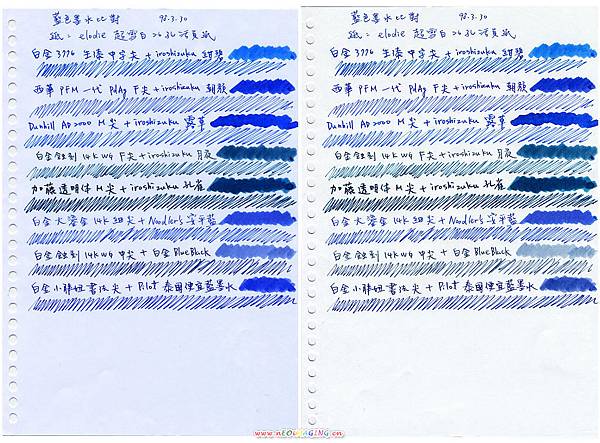 藍色墨水比對 98.3.30
紙: elodie 超雪白26孔活頁紙
白金 3776 生漆 中字尖 + iroshizuku 紺碧
西華 PFM 一代 PdAg F尖 + iroshizuku 朝顏
Dunhill AD2000 M尖 + iroshizuku 露草
白金蝕刻 14K WG F尖 + iroshizuku 月夜
加藤透明体 M尖 + iroshizuku 孔雀
白金大鎏金 14K 細尖 + Noodler's 藍
白金蝕刻 14K WG 中尖 + 白金 BlueBlack
白金小胖妞書法尖 + Pilot 泰國便宜藍墨水
藍色墨水比對 98.3.30
紙: elodie 超雪白26孔活頁紙
白金 3776 生漆 中字尖 + iroshizuku 紺碧
西華 PFM 一代 PdAg F尖 + iroshizuku 朝顏
Dunhill AD2000 M尖 + iroshizuku 露草
白金蝕刻 14K WG F尖 + iroshizuku 月夜
加藤透明体 M尖 + iroshizuku 孔雀
白金大鎏金 14K 細尖 + Noodler's 藍
白金蝕刻 14K WG 中尖 + 白金 BlueBlack
白金小胖妞書法尖 + Pilot 泰國便宜藍墨水
www.nEOiMAGING.cn